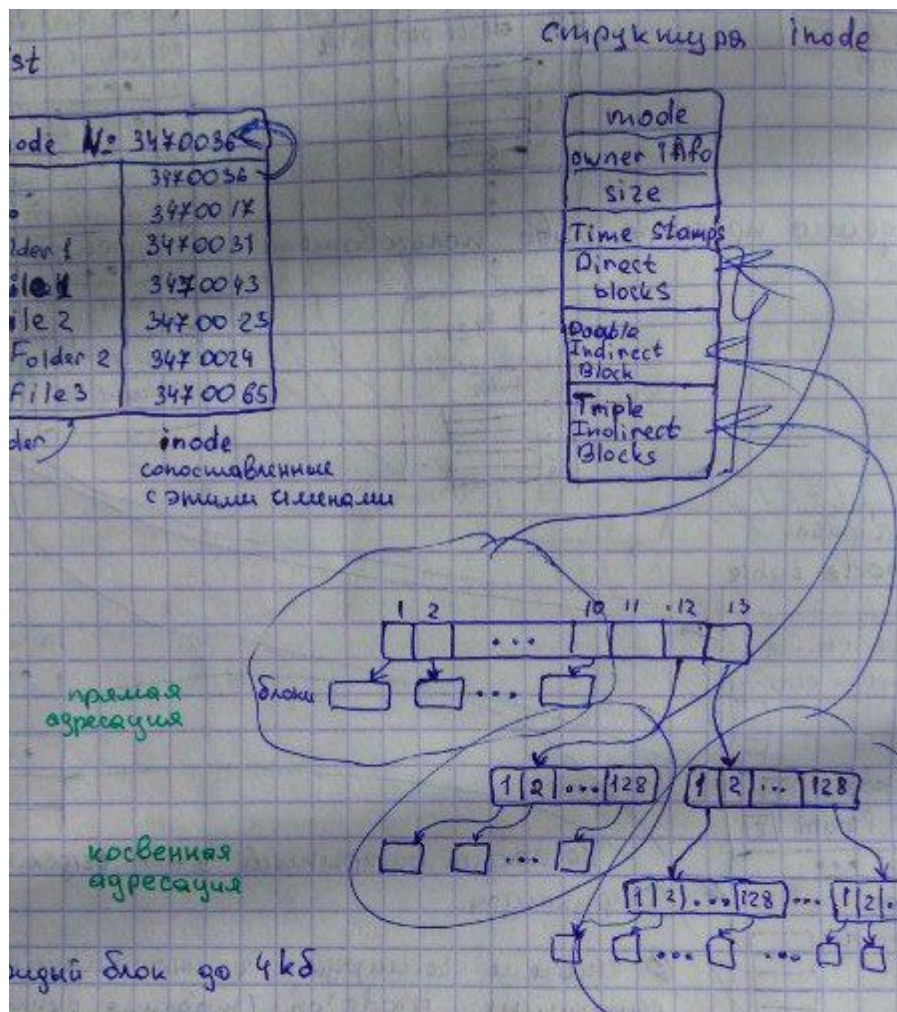 структура inode
st
ode № 3470036
3470036
3470017
lder 1 3470031
ile 1 3470043
ile 2 3470023
Folder 2 3470024
File 3 3470065
der
inode
сопоставленные
с этими именами
mode
owner info
size
Time Stamps
Direct
blocks
Double
Indirect
Block
Triple
Indirect
Blocks
1 2 10 11 12 13
...
прямая
адресация
блоки ...
1 2 ... 128
1 2 ... 128
косвенная
адресация
...
1 2 ... 128 ... 1 2 .
... ...
ждый блок до 4кб